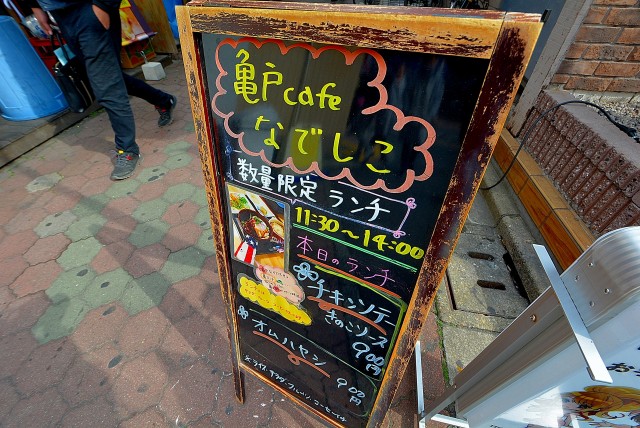 亀戸cafe
なでしこ
数量限定 ランチ
11:30～14:00
本日のランチ
チキンソテー
きのこソース
900円
オムハヤシ
900円